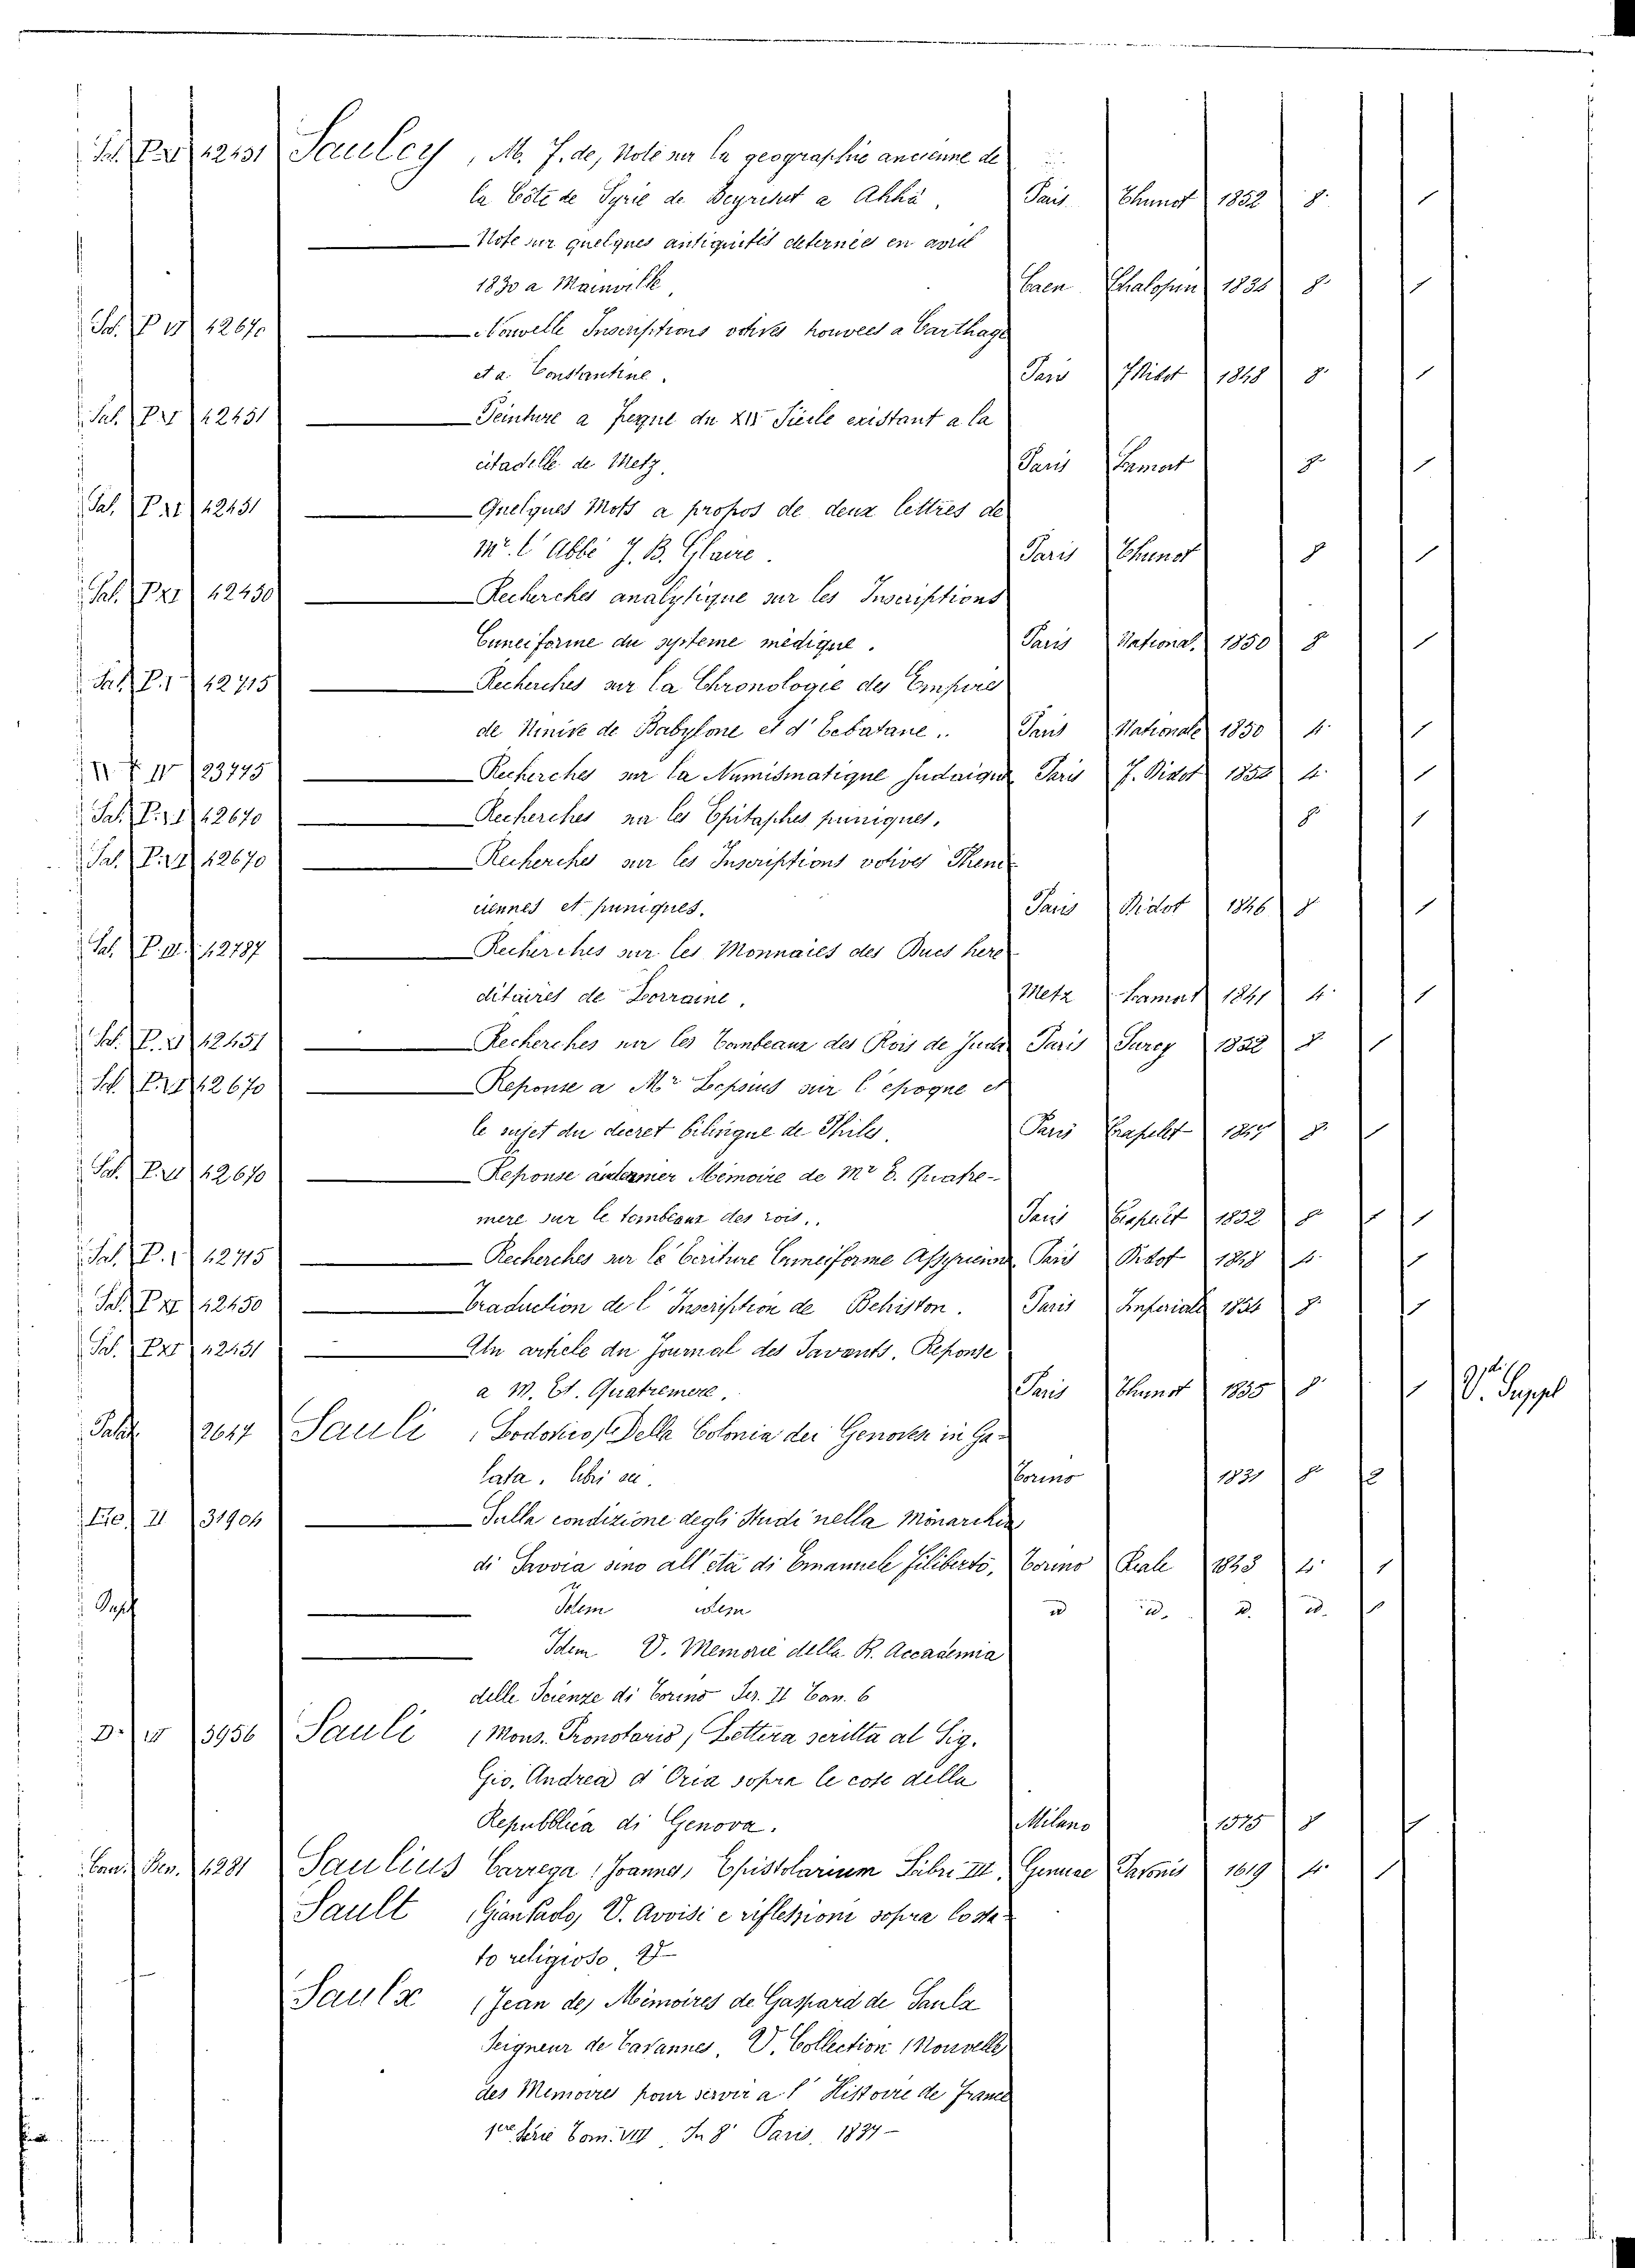 Sal. P.XI 42431 Saulcy, M. F. de, Note sur la geographie ancienne de
la Côte de Syrie de Beyrout a Ahha. Paris Thunot 1852 8. 1
Note sur quelques antiquités deterriés en avril
1830 a Mainville, Caen Chalopin 1831 8. 1
Sal. P 12670 Nouvelle Inscriptions votives trouvees a Carthage
et a Constantine. Paris F Didot 1848 8. 1
Sal. P XI 42431 Peinture a freque du XIV Siecle existant a la
citadelle de Metz. Paris Lamort 8. 1
Sal. P XI 42431 Quelques Mots a propos de deux lettres de
Mr. l'Abbé J. B. Glaire. Paris Thunot 8 1
Sal. P XI 42430 Recherches analytique sur les Inscriptions
Cuneiforme du systeme médique. Paris National. 1850 8. 1
Sal. P. 1 42715 Recherches sur la Chronologie des Empires
de Ninive de Babylone et d'Ecbatane.. Paris Nationale 1850 4. 1
23775 Recherches sur la Numismatique Judaique Paris F. Didot 1854 4. 1
Sal. P. 42670 Recherches sur les Epitaphes puniques. 8. 1
Sal. P. 42670 Recherches sur les Inscriptions votives Pheni
ciennes et puniques. Paris Didot 1846 8 1
Sal. P. 42787 Recherches sur les Monnaies des Ducs here
ditaires de Lorraine. Metz Lamort 1841 4. 1
Sal. P. 42431 Recherches sur les Tombeaux des Rois de Juda Paris Surcy 1852 8. 1
Sal. P. 42670 Reponse a Mr Lepsius sur l'epoque et
le sujet du decret bilingue de Philes. Paris Crapelet 1847 8. 1
Sal. P. 42670 Reponse Mémoire de Mr E. Quatre-
mere sur le tombeaux des rois.. Paris Crapelet 1852 8. 1
Sal. P. 1 42715 Recherches sur le Ecriture Cuneiforme Assyrienne Paris Didot 1848 4. 1
Sal. P XI 42450 Traduction de l'Inscription de Behiston. Paris Imperiale 1854 8. 1
Sal. P XI 42431 Un article du Journal des Savants. Reponse
a M. Et. Quatremere. Paris Thunot 1855 8. 1 V. Suppl
2647 Sauli, Lodovico, Della Colonia dei Genovesi in Ga-
lata. Libri sei. Torino 1831 8. 2
31904 Sulla condizione degli Studi nella Monarchia
di Savoia sino all'età di Emanuele Filiberto, Torino Reale 1843 4. 1
Idem idem id id. id. id. 1
Idem V. Memorie della R. Accademia
delle Scienze di Torino Ser. II Tom. 6
D. 3956 Sauli, Mons. Pronotario, Lettera scritta al Sig.
Gio. Andrea d'Oria sopra le cose della
Repubblica di Genova. Milano 1575 8 1
Can. Ben. 4281 Saulius Carrega, Joannes, Epistolarium Libri III. Genuae Pavonis 1619 4. 1
Sault, Gian Paolo, V. Avvisi e riflessioni sopra lo sta-
to religioso.
Saulx, Jean de, Mémoires de Gaspard de Saulx
Seigneur de Tavannes, V. Collection Nouvelle
des Memoires pour servir a l'Histoire de France
1ere Serie Tom. VIII In 8° Paris, 1837 -